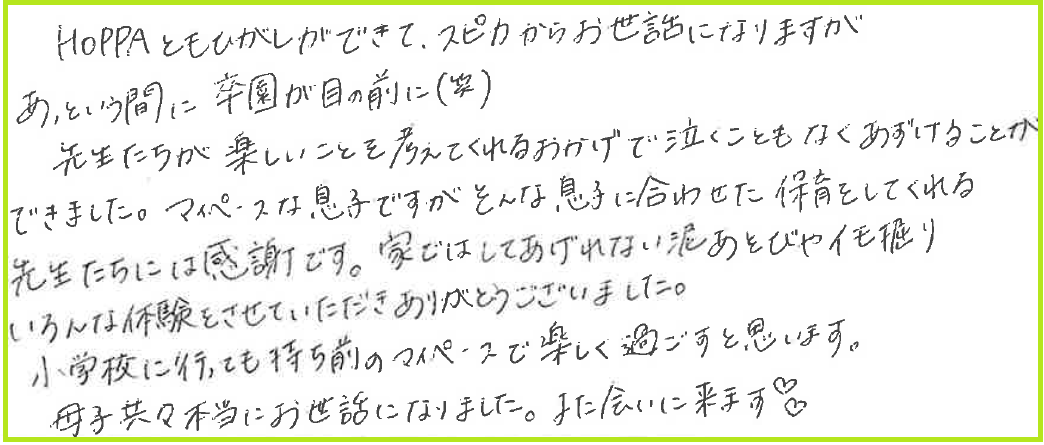 HOPPAともひがしができて、スピカからお世話になりますが
あっという間に卒園が目の前に(笑)
先生たちが楽しいことを考えてくれるおかげで泣くこともなくあずけることが
できました。マイペースな息子ですがそんな息子に合わせた保育をしてくれる
先生たちには感謝です。家ではしてあげれない泥あそびやイモ掘り
いろんな体験をさせていただきありがとうございました。
小学校に行っても持ち前のマイペースで楽しく過ごすと思います。
母子共々本当にお世話になりました。また会いに来ます♡♡